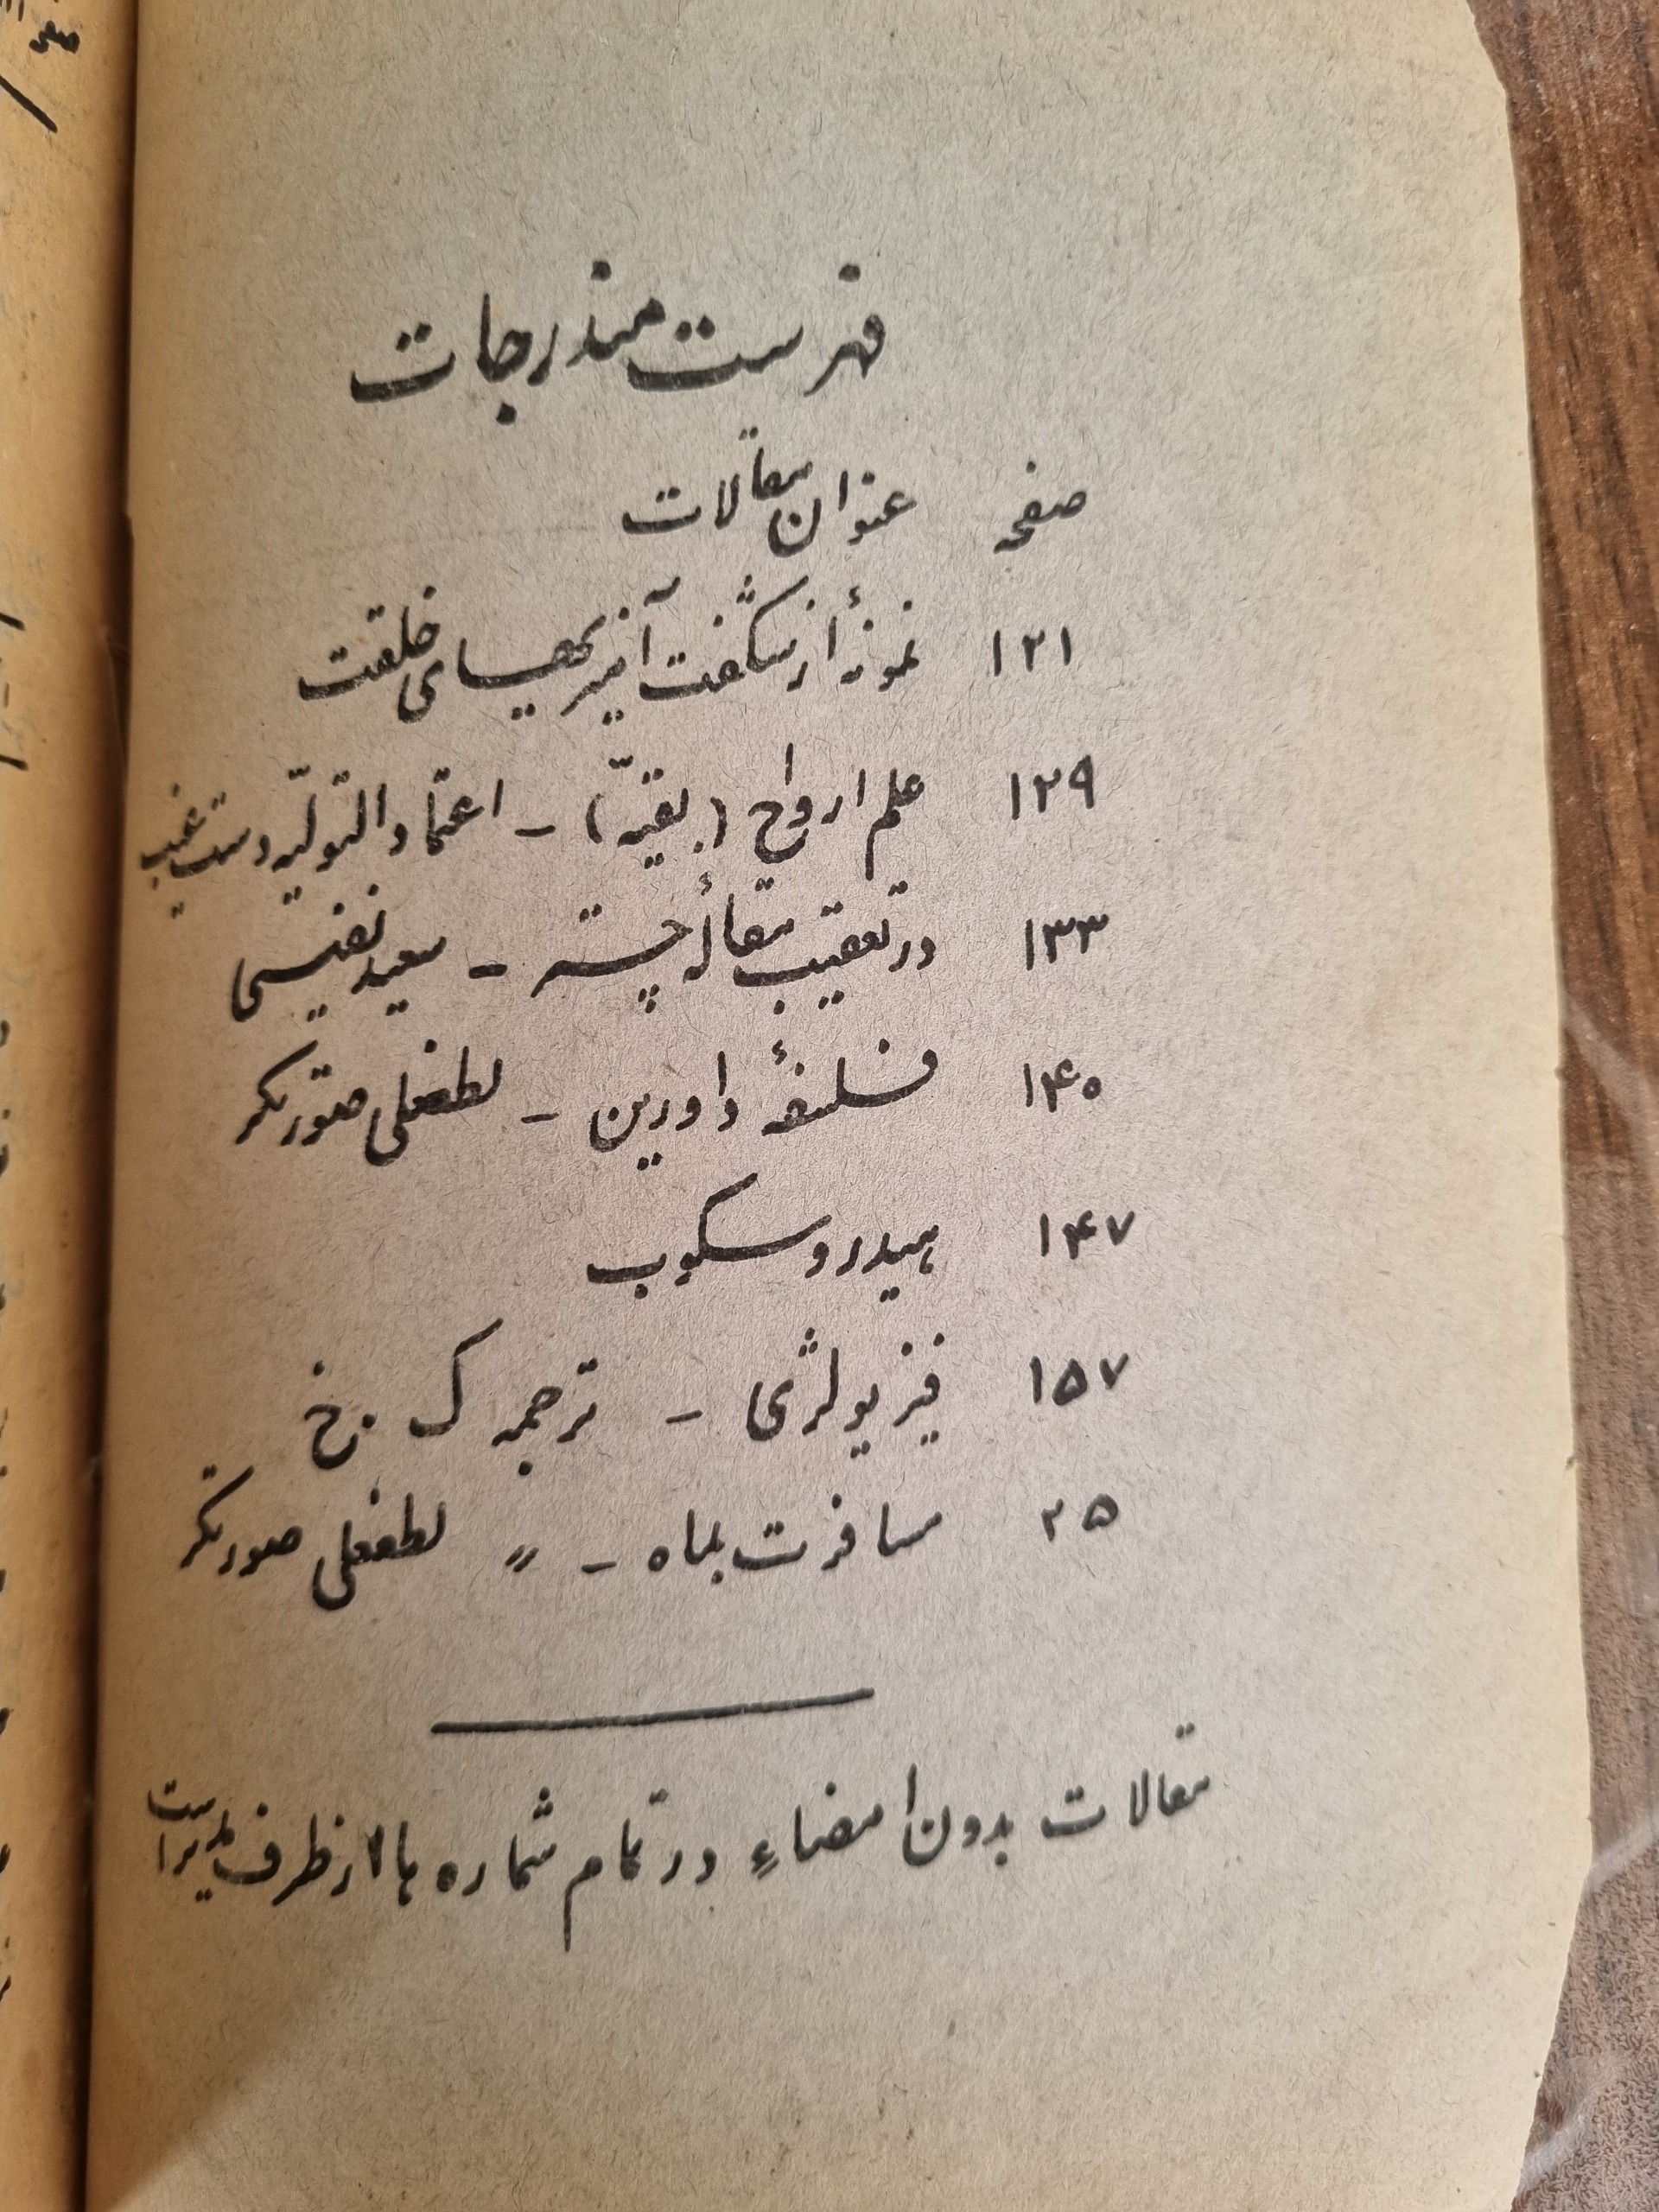 فهرست مندرجات
صفحه عنوان مقالات
۱۲۱ نمونهٔ از شگفت آمیزیهای خلقت
۱۲۹ علم ارواح (بقیّه) – اعتماد التولیّه دست غیب
۱۳۳ در تعقیب مقالهٔ چسته – سعید نفیسی
۱۴۰ فلسفهٔ داروین – لطفعلی صورتگر
۱۴۷ هیدروسکوپ
۱۵۷ فیزیولژی – ترجمه ک . خ
۲۵ مسافرت بماه – " لطفعلی صورتگر
مقالات بدون امضاءِ در تمام شماره ها از طرف مدیر است